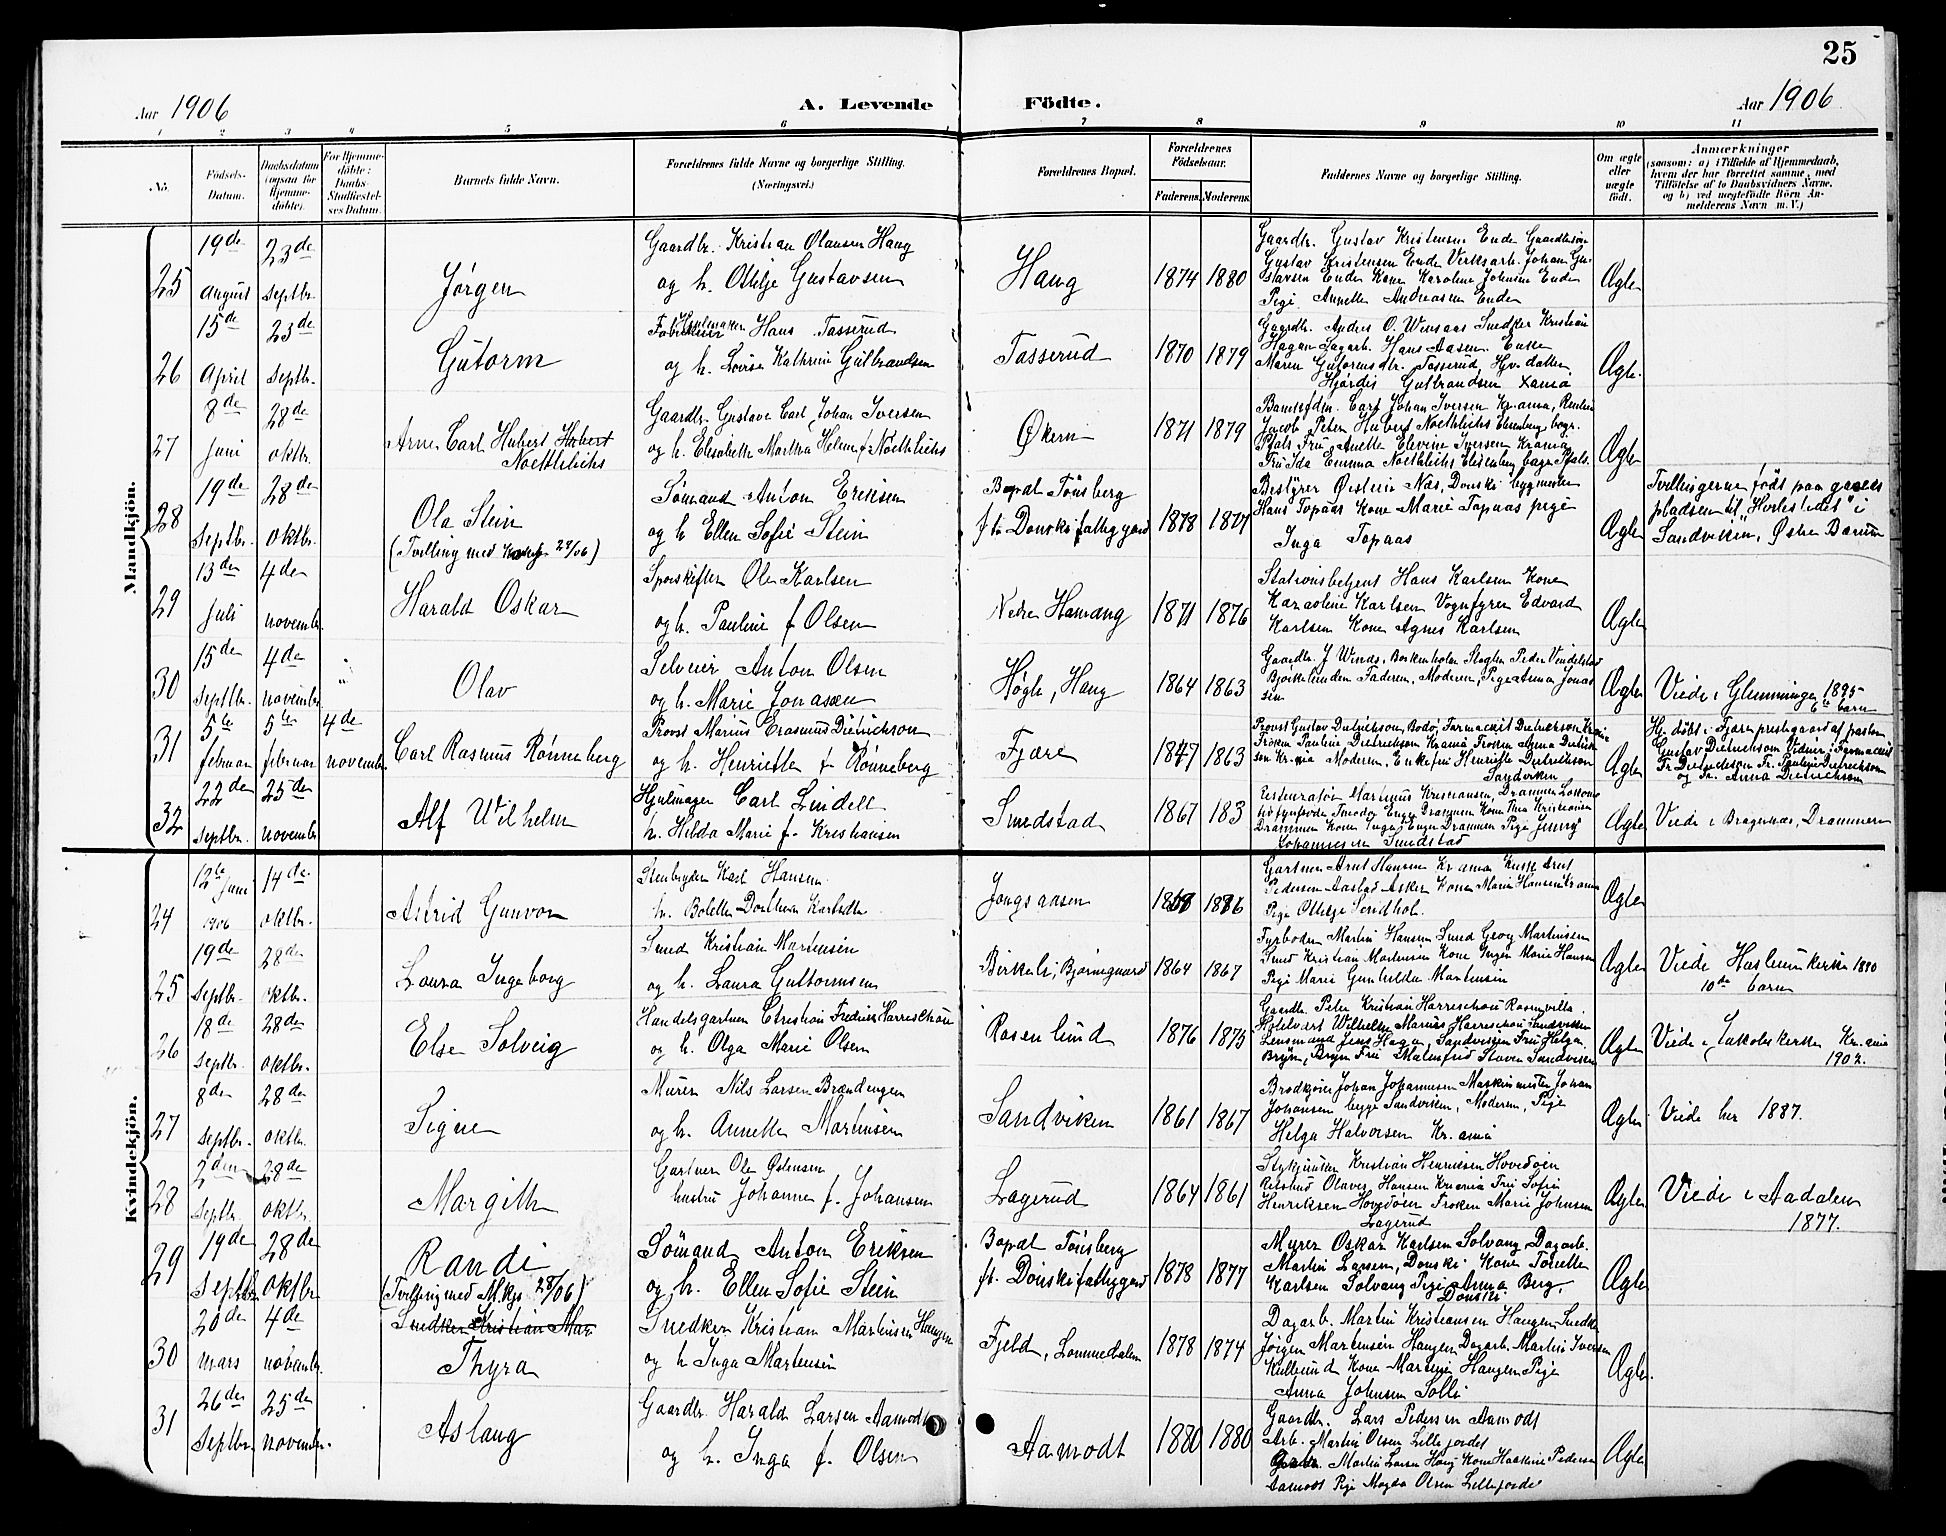 25
Aar 1906
A. Levende Födte.
Aar 1906
1 2 3 4 5 6 7 8 9 10 11
No.
Födsels-
Datum.
Daabsdatum
(ogsaa for
Hjemme-
döbte).
For Hjemme-
döbte:
Daabs-
Stadfæstel-
ses Datum.
Barnets fulde Navn.
Forældrenes fulde Navne og borgerlige Stilling.
(Næringsvei.)
Forældrenes Bopæl.
Forældrenes
Födselsaar.
Faderens. Moderens.
Faddernes Navne og borgerlige Stilling.
Om ægte
eller
uægte
födt.
Anmærkninger
(saasom: a) i Tilfælde af Hjemmedaab,
hvem der har forrettet samme, med
Tilföielse af to Daabsvidners Navne,
og b) ved uægtefödte Börn An-
melderens Navn m. V.)
Mandkjön.
25
19de August
23de Septbr.
Jørgen
Gaardbr. Kristian Olausen Haug
og h. Ottilje Gustavsen
Haug
1874 1880
Gaardbr. Gustav Kristensen Ende Gaardbr.søn
Gustav Kristensen Ende Verksarb. Johan Gu-
stavsen Ende Kone Karoline Johnine Ende
Pige Annette Andreasen Ende
Ægte
26
15de April
23de Septbr.
Gutorm
Hans Tasserud
og h. Lovise Kathrine Gulbrandsen
Tasserud
1870 1879
Gaardbr. Andres O. Wensaas Snedker Kristian
Hagan Lagarb. Hans Aasen Enke
Maren Gutormsdtr. Tasserud,
Hjørdis Gulbrandsen
Ægte.
27
8de Juni
28de oktbr.
Arne Carl Hubert Hubert
Noethlichs
Gaardbr. Gustave Carl Johan Iversen
og h. Elisabeth Martha Helene f. Noethlichs
Økern
1871 1879
Carl Johan Iversen Kr.ania, Rentier
Jacob Peter Hubert Noethlichs
Pfals Fru Anette Elvine Iversen Kr.ania
Fru Ida Emma Noethlichs
Ægte
28
19de Septbr.
28de oktbr.
Ola Stein
(Tvilling med 29/06)
Sømand Anton Eriksen
og h. Ellen Sofie Stein
Bopæl Tønsberg
ft. Dønski fattiggaard
1878 1877
Bestyrer Øistein Næs, Dønski bygmester
Hans Topaas Kone Marie Topaas pige
Inga Topaas
Ægte
Tvillingerne født paa gaards
pladsen til "Hvilestedet" i
Sandviken, Østre Bærum
29
13de Juli
4de november
Harald Oskar
Sporskifter Ole Karlsen
og h. Pauline f. Olsen
Nedre Hamang
1871 1876
Stationsbetjent Hans Karlsen Kone
Karoline Karlsen Vognfyrer Edvard
Karlsen Kone Agnes Karlsen
Ægte
30
15de Septbr.
4de november
"
"
Olav
Selveier Anton Olsen
og h. Marie Jonasen
Høgh, Haug
1864 1863
Gaardbr. J Winds, Slagter Peder Vindelstad
Bjørklunden Faderen, Moderen, Pige Anna Jonas
sen
Ægte
Viede i Glemminge 1895
6te barn
31
5te februar
5te februar
4de november
Carl Rasmus Rønneberg
Provst Marius Erasmus Dietrichson
og h. Henriette f. Rønneberg
Fjære
1847 1863
Provst Gustav Dietrichson, Bodø, Farmaceut Dietrichson Kr.ania
Frøken Pauline Dietrichson Kr.ania Frøken Anna Dietrich
son Kr.ania Moderen, Enkefru Henriette Dietrichson
Sandviken
Ægte
Hj. døbt i Fjære prestegaard af pastor
Gustav Dietrichson Vidner: Farmaceut
Fr. Dietrichson Fr. Pauline Dietrichson
og Fr. Anna Dietrichson
32
22de Septbr.
25de november
Alf Wilhelm
Hjulmager Carl Lindell
h. Hilda Marie f. Kristiansen
Smedstad
1867 183
Restauratør Marinus Kristiansen, Drammen
Theodor Enge Drammen Kone Thea Kristiansen
Drammen Kone Inga Enge Drammen Pige Jenny
Johannesen Smedstad
Ægte
Viede i Bragernæs, Drammen
Kvindekjön.
24
12te Juni 1906
14de oktbr.
Astrid Gunvor
Stenbryder Karl Hansen
h. Bolette Dorthea
Jongsaasen
1886
Gartner Arnt Hansen Kr.ania
Pedersen Aastad Asker Kone Marie Hansen Kr.ania
Pige Ottilje
Ægte
25
19de Septbr.
28de oktbr.
Laura Ingeborg
Smed Kristian Martinsen
og h. Laura Guttormsen
Birkeli, Bjørnegaard
1864 1867
Fyrbøder Martin Hansen Smed Georg Martinsen
Smed Kristian Martinsen Kone Inger Marie Hansen
Pige Marie Gunhilda Martinsen
Ægte
Viede Haslum kirke 1890
10de barn
26
18de Septbr.
28de oktbr.
Else Solveig
Handelsgartner Christian Fredrik Harreschou
og h. Olga Marie Olsen
Rosenlund
1876 1875
Gaardbr. Peter Kristian Harreschou Rosenvilla
Hotelvert Wilhelm Marius Harreschou Sandviken
Lensmand Jens Hagen, Sandviken Fru Helga
Bryn, Bryn Fru Malmfrid Staver Sandviken
Ægte
Viede i Jakobskirke Kr.ania
1902.
27
8de Septbr.
28de oktbr.
Signe
Murer Nils Larsen Brændengen
og h. Annette Martinsen
Sandviken
1861 1867
Brødkjører Johan Johannesen Maskinmester Johan
Johansen begge Sandviken, Moderen, Pige
Helga Halvorsen Kr.ania
Ægte
Viede her 1887.
28
2den Septbr.
28de oktbr.
Margith
Gartner Ole Østensen
hustru Johanne f. Johansen
Lagerud
1864 1861
Kristian Henriksen Hovedøen
Olaves Hansen Kr.ania Fru Sofie
Henriksen Hovedøen Frøken Marie Johnsen
Lagerud
Ægte
Viede i Aadalen
1877.
29
19de Septbr
28de oktbr
Randi
(Tvilling med M.kjø 28/06)
Sømand Anton Eriksen
og h. Ellen Sofie Stein
Bopæl Tønsberg
ft. Dønski fattiggaard
1878 1877
Murer Oskar Karlsen Solvang Dagarb.
Martin Larsen, Dønski Kone
Karlsen Solvang Pige Anna Berg,
Dønski
Ægte
30
20de mars
4de november
Snedker Kristian Mar
Thyra
Snedker Kristian Martinsen Haugen
og h. Inga Martinsen
Fjeld, Lommedalen
1878 1874
Dagarb. Martin Kristiansen Haugen Snedker
Jørgen Martinsen Haugen Dagarb. Martin Iversen
Kone Martine Haugen Pige
Anna Johnsen Solli
Ægte.
31
26de Septbr.
25de november.
Aslaug
Gaardbr. Harald Larsen Aamodt
og h. Inga f. Olsen
Aamodt
1880 1880
Gaardbr. Lars Pedersen Aamodt
Arb. Martin Olsen Lillejordet
Martin Larsen Haug Kone Pedersen
Aamodt Pige Magda Olsen Lillejorde
Ægte